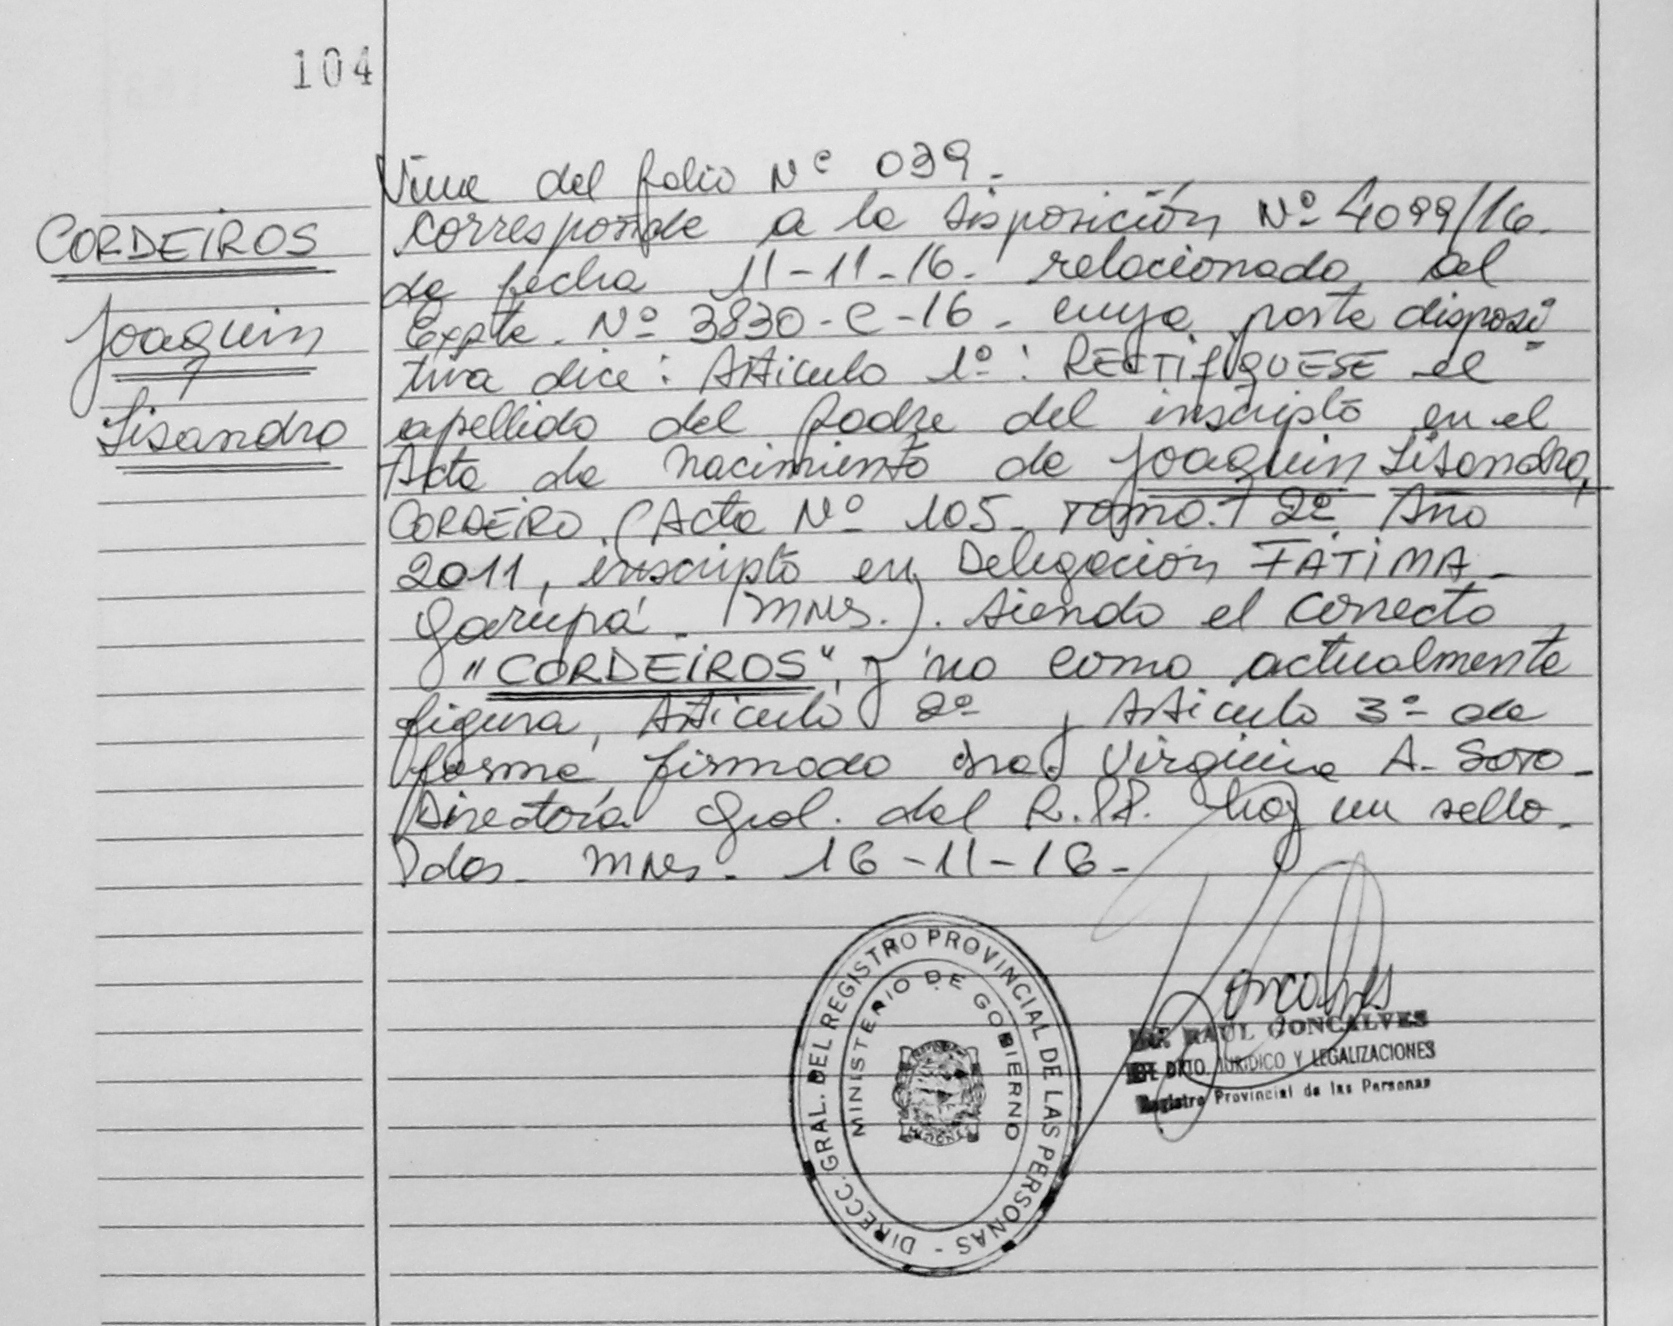 104
CORDEIROS
Joaquin
Lisandro
Viene del folio Nº 039.
corresponde a la disposición Nº 4099/16.
de fecha 11-11-16. relacionado al
Expte. Nº 3830-C-16. cuya parte disposi
tiva dice: Artículo 1º: RECTIFIQUESE el
apellido del padre del inscripto en el
Acta de nacimiento de Joaquin Lisandro
CORDEIRO (Acta Nº 105 - Tomo 2º Año
2011, inscripto en Delegación FÁTIMA -
Garupá. Mnes.). siendo el correcto
"CORDEIROS", y no como actualmente
figura, Artículo 2º, Artículo 3º de
forma firmado Virginia A. Soto -
Directora Gral. del R.PP. hay un sello.
Pdas. Mnes. 16-11-16.-
DIRECC. GRAL. DEL REGISTRO PROVINCIAL DE LAS PERSONAS -
MINISTERIO DE GOBIERNO
MISIONES
RAUL GONCALVES
DPTO. JURIDICO Y LEGALIZACIONES
Registro Provincial de las Personas